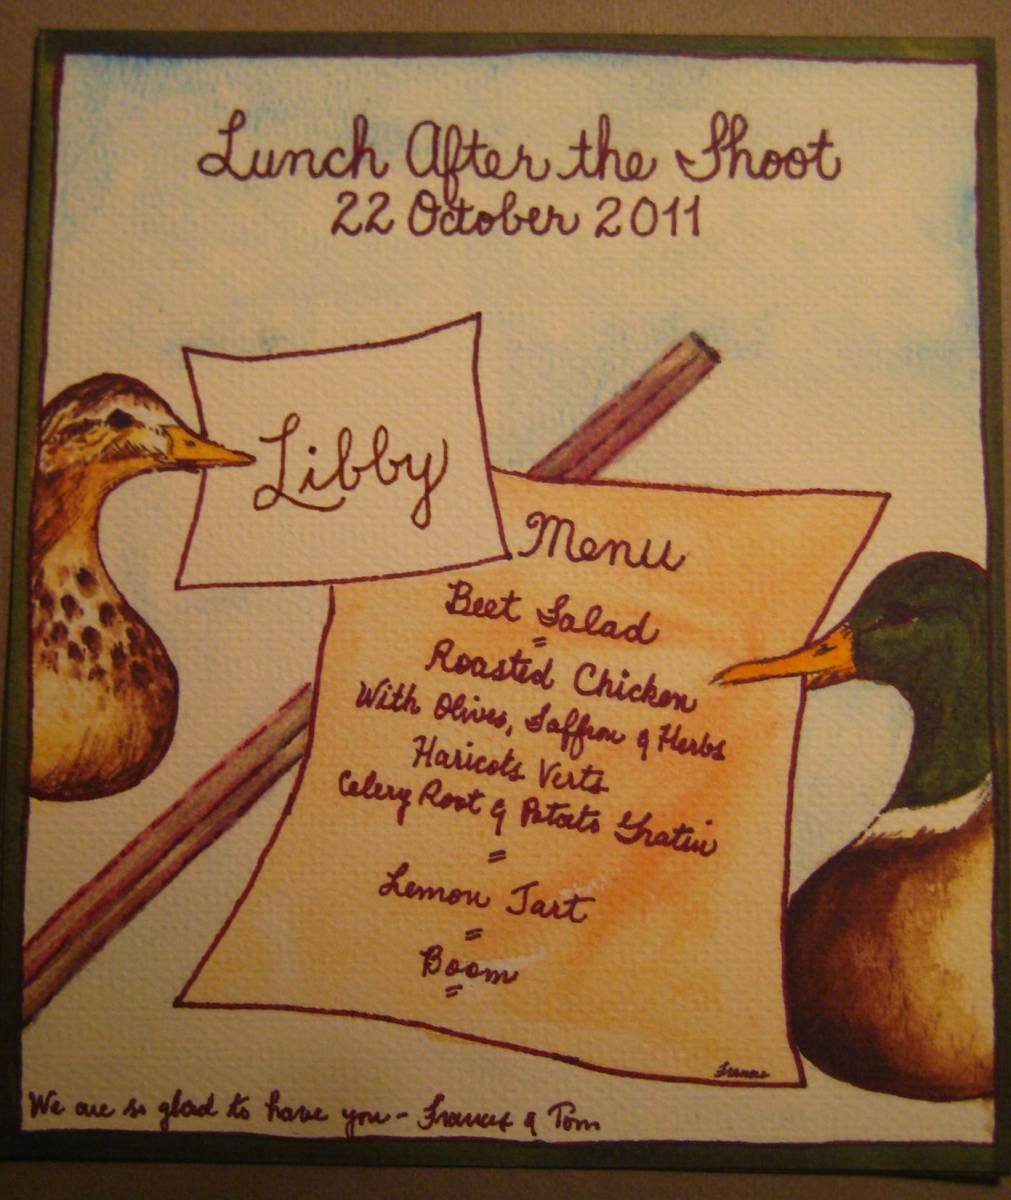 Lunch After the Shoot
22 October 2011
Libby
Menu
Beet Salad
=
Roasted Chicken
With Olives, Saffron & Herbs
Haricots Verts
Celery Root & Potato Gratin
=
Lemon Tart
=
Boom
=
Frances
We are so glad to have you - Frances & Tom